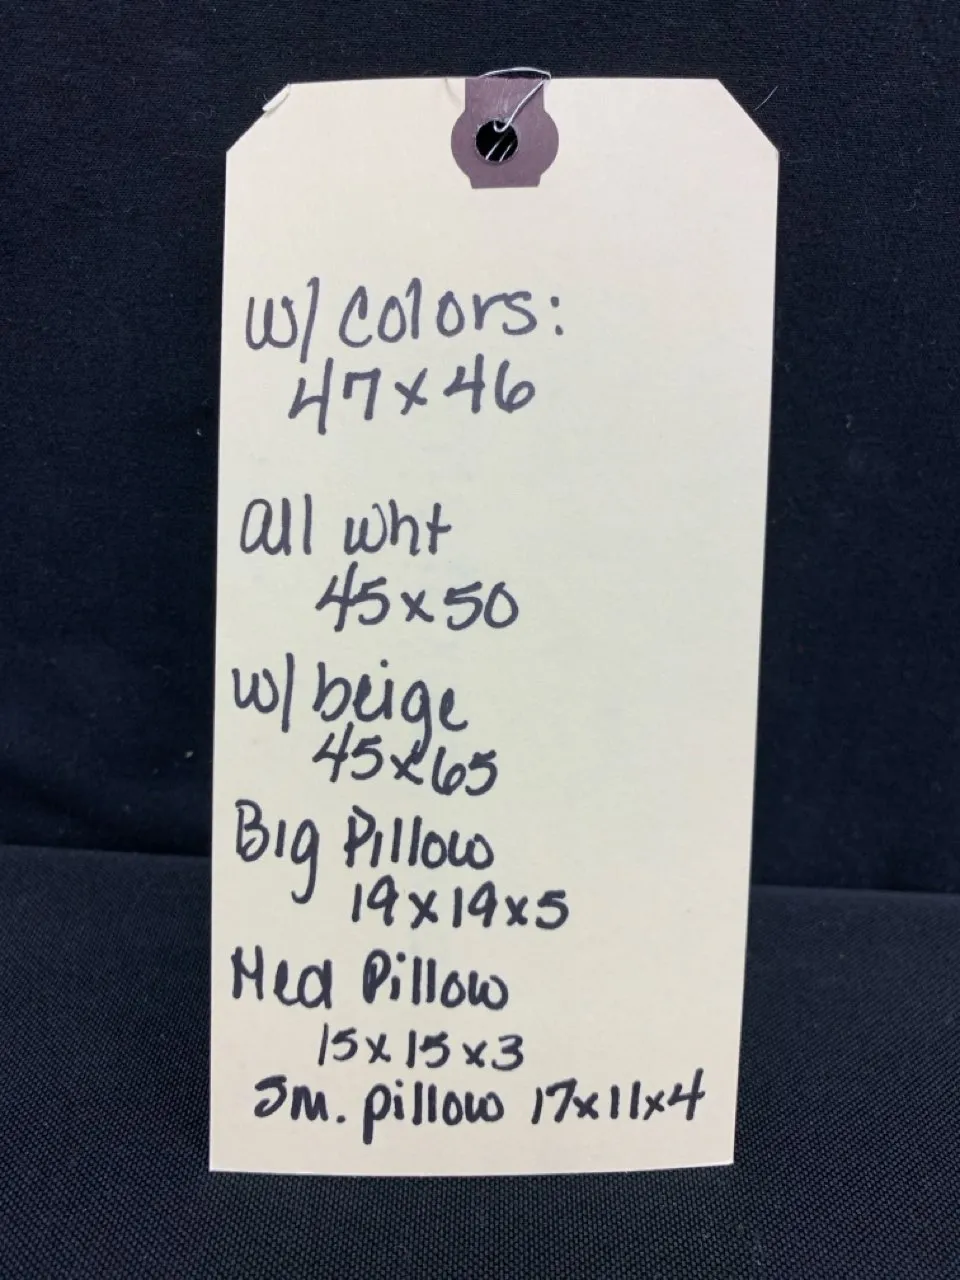 w/ colors:
47x46
all wht
45x50
w/ beige
45x65
Big Pillow
19x19x5
Med Pillow
15x15x3
Sm. pillow 17x11x4